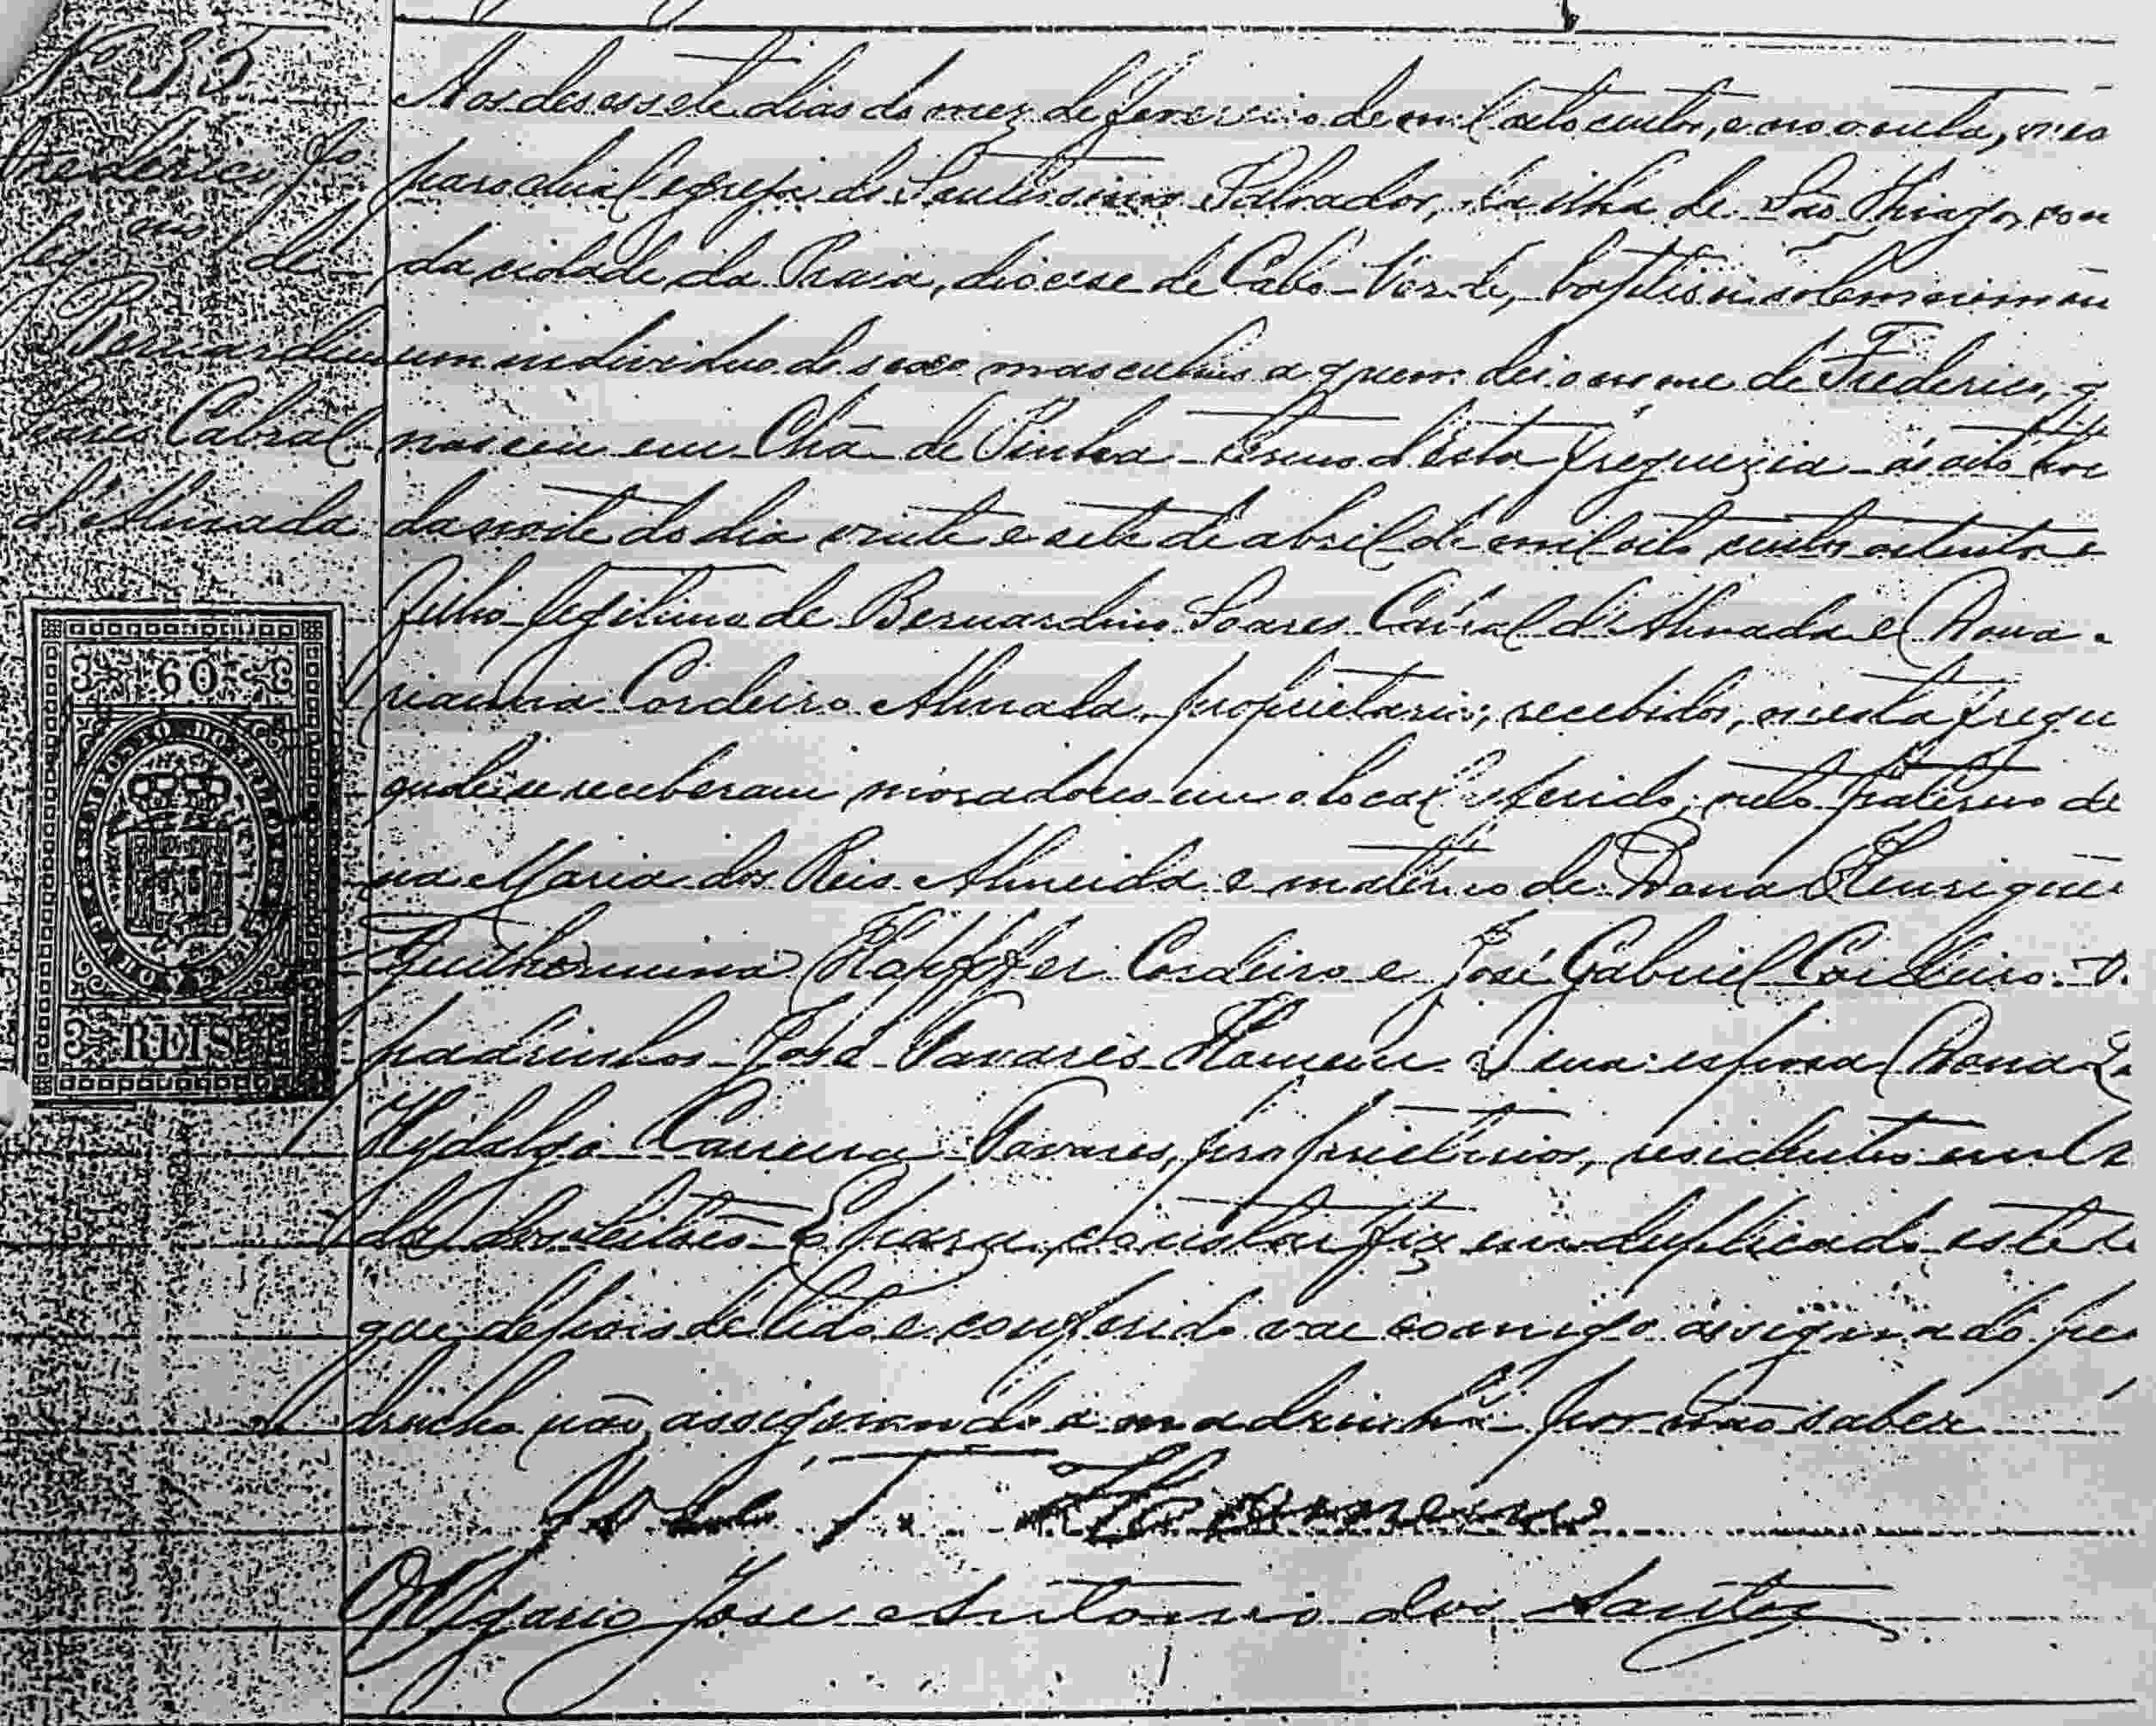 Nº 35
Frederico, fo
leg mo de
Bernardino
Soares Cabral
d'Almada
60
REIS
Aos desassete dias do mez de fevereiro de mil oito centos, e noventa, n'es
parochial egreja do Santissimo Salvador, da ilha de São Thiago, con
da cidade da Praia, diocese de Cabo-Verde, baptisei solemnemen
um individuo de sexo masculino a quem dei o nome de Frederico, q
nasceu em Chã de Pinha termo d'esta freguezia ás oito hor
da noite do dia vinte e sete de abril de mil oito centos oitenta e
filho legitimo de Bernardino Soares Cabral d'Almada e Dona
rianna Cordeiro Almada, proprietarios, recebidos, n'esta fregu
onde se receberam moradores em o local referido; neto paterno de
na Maria dos Reis Almeida e materno de Dona Henrique
Guilhermina Hopffer Cordeiro e José Gabriel Cordeiro. O.
padrinhos José Tavares Homem e sua esposa Dona
Hydalga Carreira Tavares, proprietarios, residentes em
dos Leitões E para constar fiz em duplicado este
que depois de lido e conferido vae comigo assignado pe
drinho não assignando a madrinha por não saber
José T. Homem
O Vigario José Antonio dos Santos